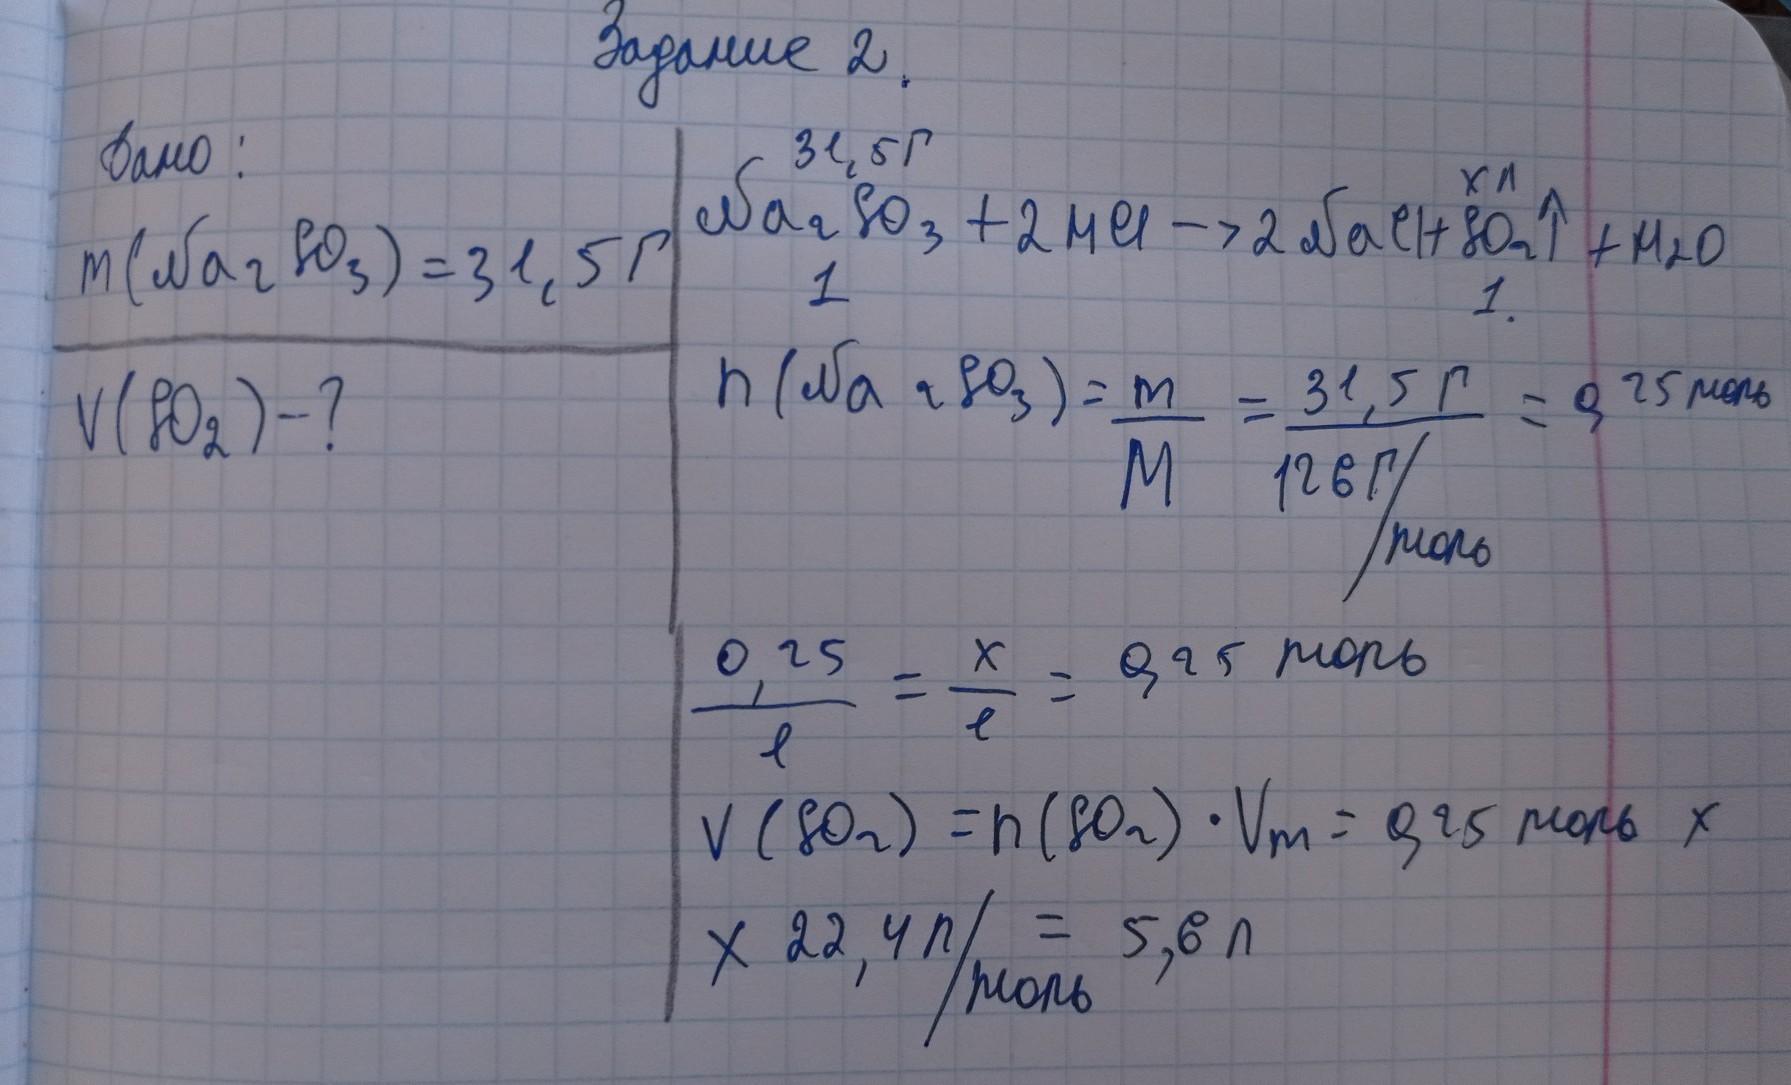 Задание 2.
Дано:
m(Na2SO3) = 31,5 г
V(SO2) - ?
31,5 г
х л
Na2SO3 + 2HCl → 2NaCl + SO2↑ + H2O
1
1.
n(Na2SO3) = m/M = 31,5 г/126 г/моль = 0,25 моль
0,25/1 = x/1 = 0,25 моль
V(SO2) = n(SO2) · Vm = 0,25 моль х
х 22,4 л/моль = 5,6 л